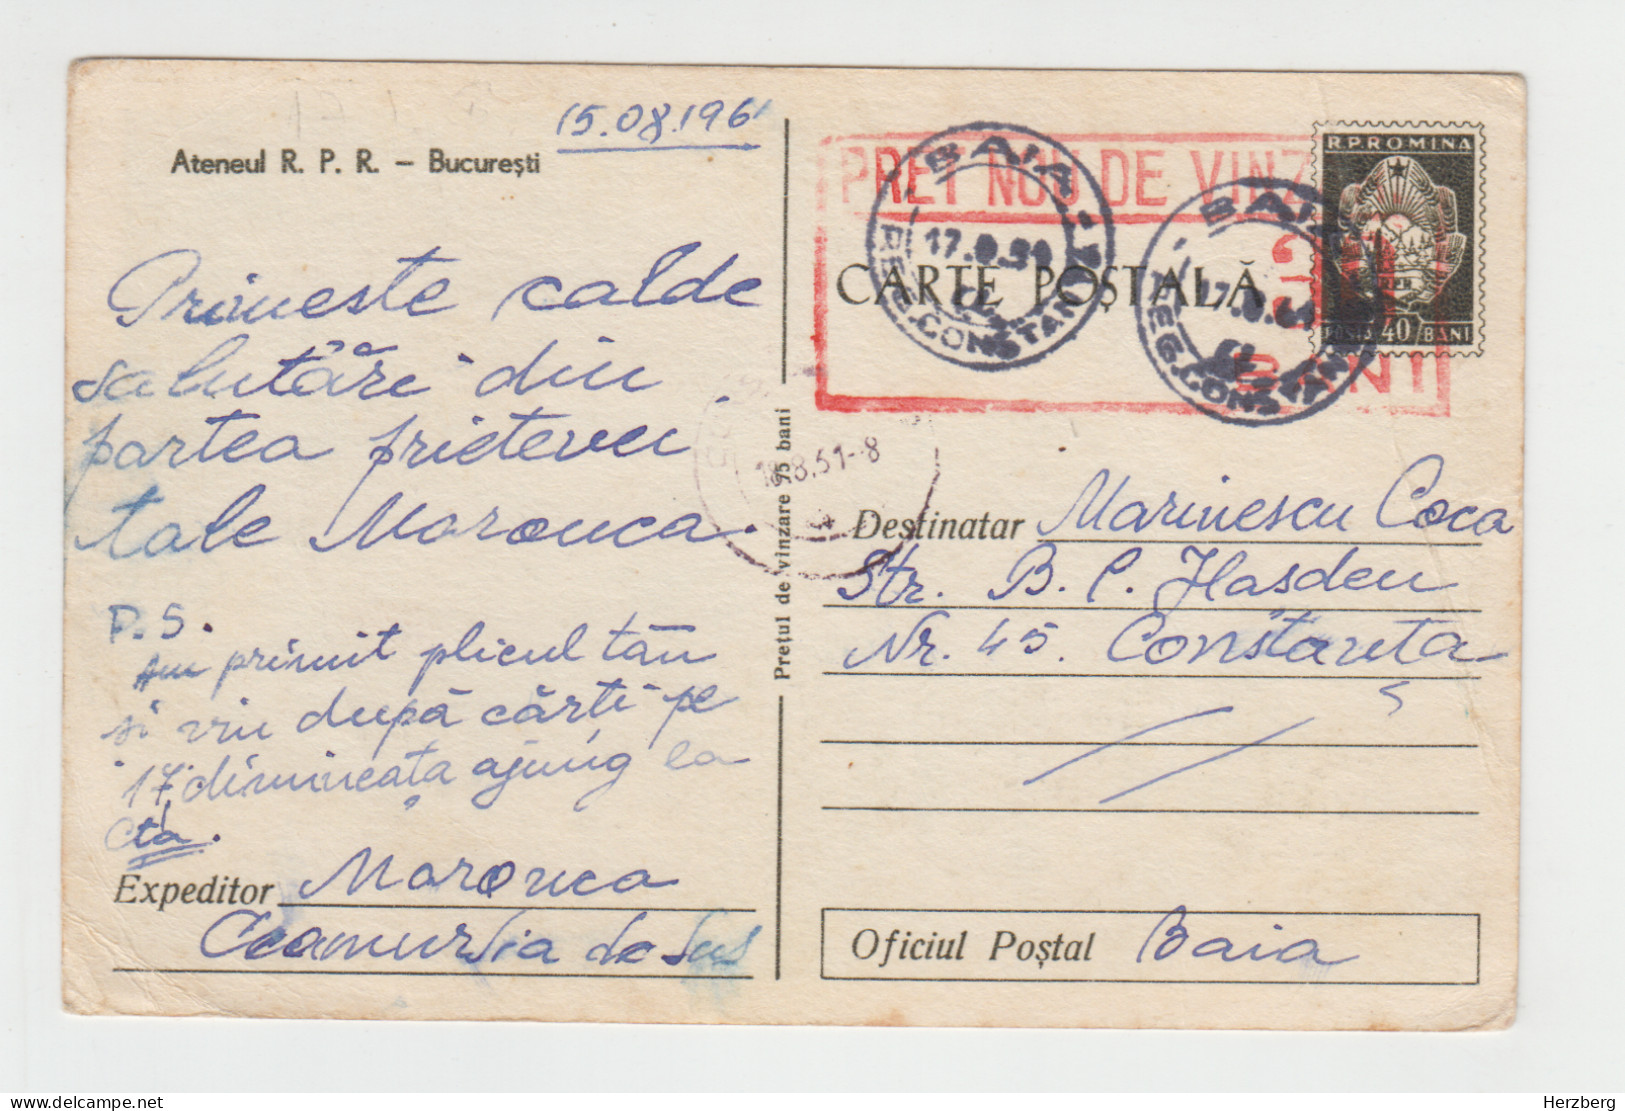 15.08.1961
Ateneul R. P. R. – București
Primește calde
salutări din
partea prietenei
tale Maronca.
P.S.
Am primit plicul tău
si viu după cărti pe
17, dimineața ajung la
Cta.
Expeditor Maronca
Ceamurlia de Sus
Prețul de vînzare 75 bani
PRET NOU DE VINZ
BANI
BAIA
17.8.61
REG. CONSTANTA
BAIA
17.8.61
REG. CONSTAN
18.8.61-8
R.P.ROMINA
RPR
POSTA 40 BANI
CARTE POȘTALĂ
Destinatar Marinescu Coca
Str. B. P. Hasdeu
Nr. 45. Constanța
Oficiul Poștal Baia
delcampe.net
Herzberg